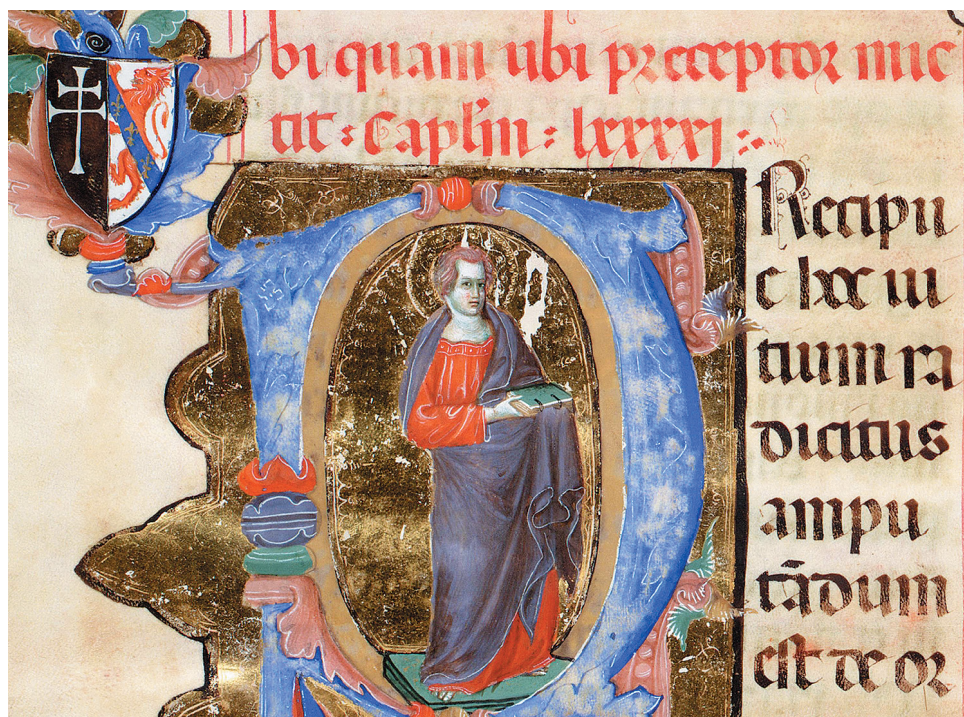 bi quam ubi preceptor mic
tit : Caplm : lxxxxj :
P
Recipu
e hoc ui
tium ra
dicitus
ampu
tādum
est de or